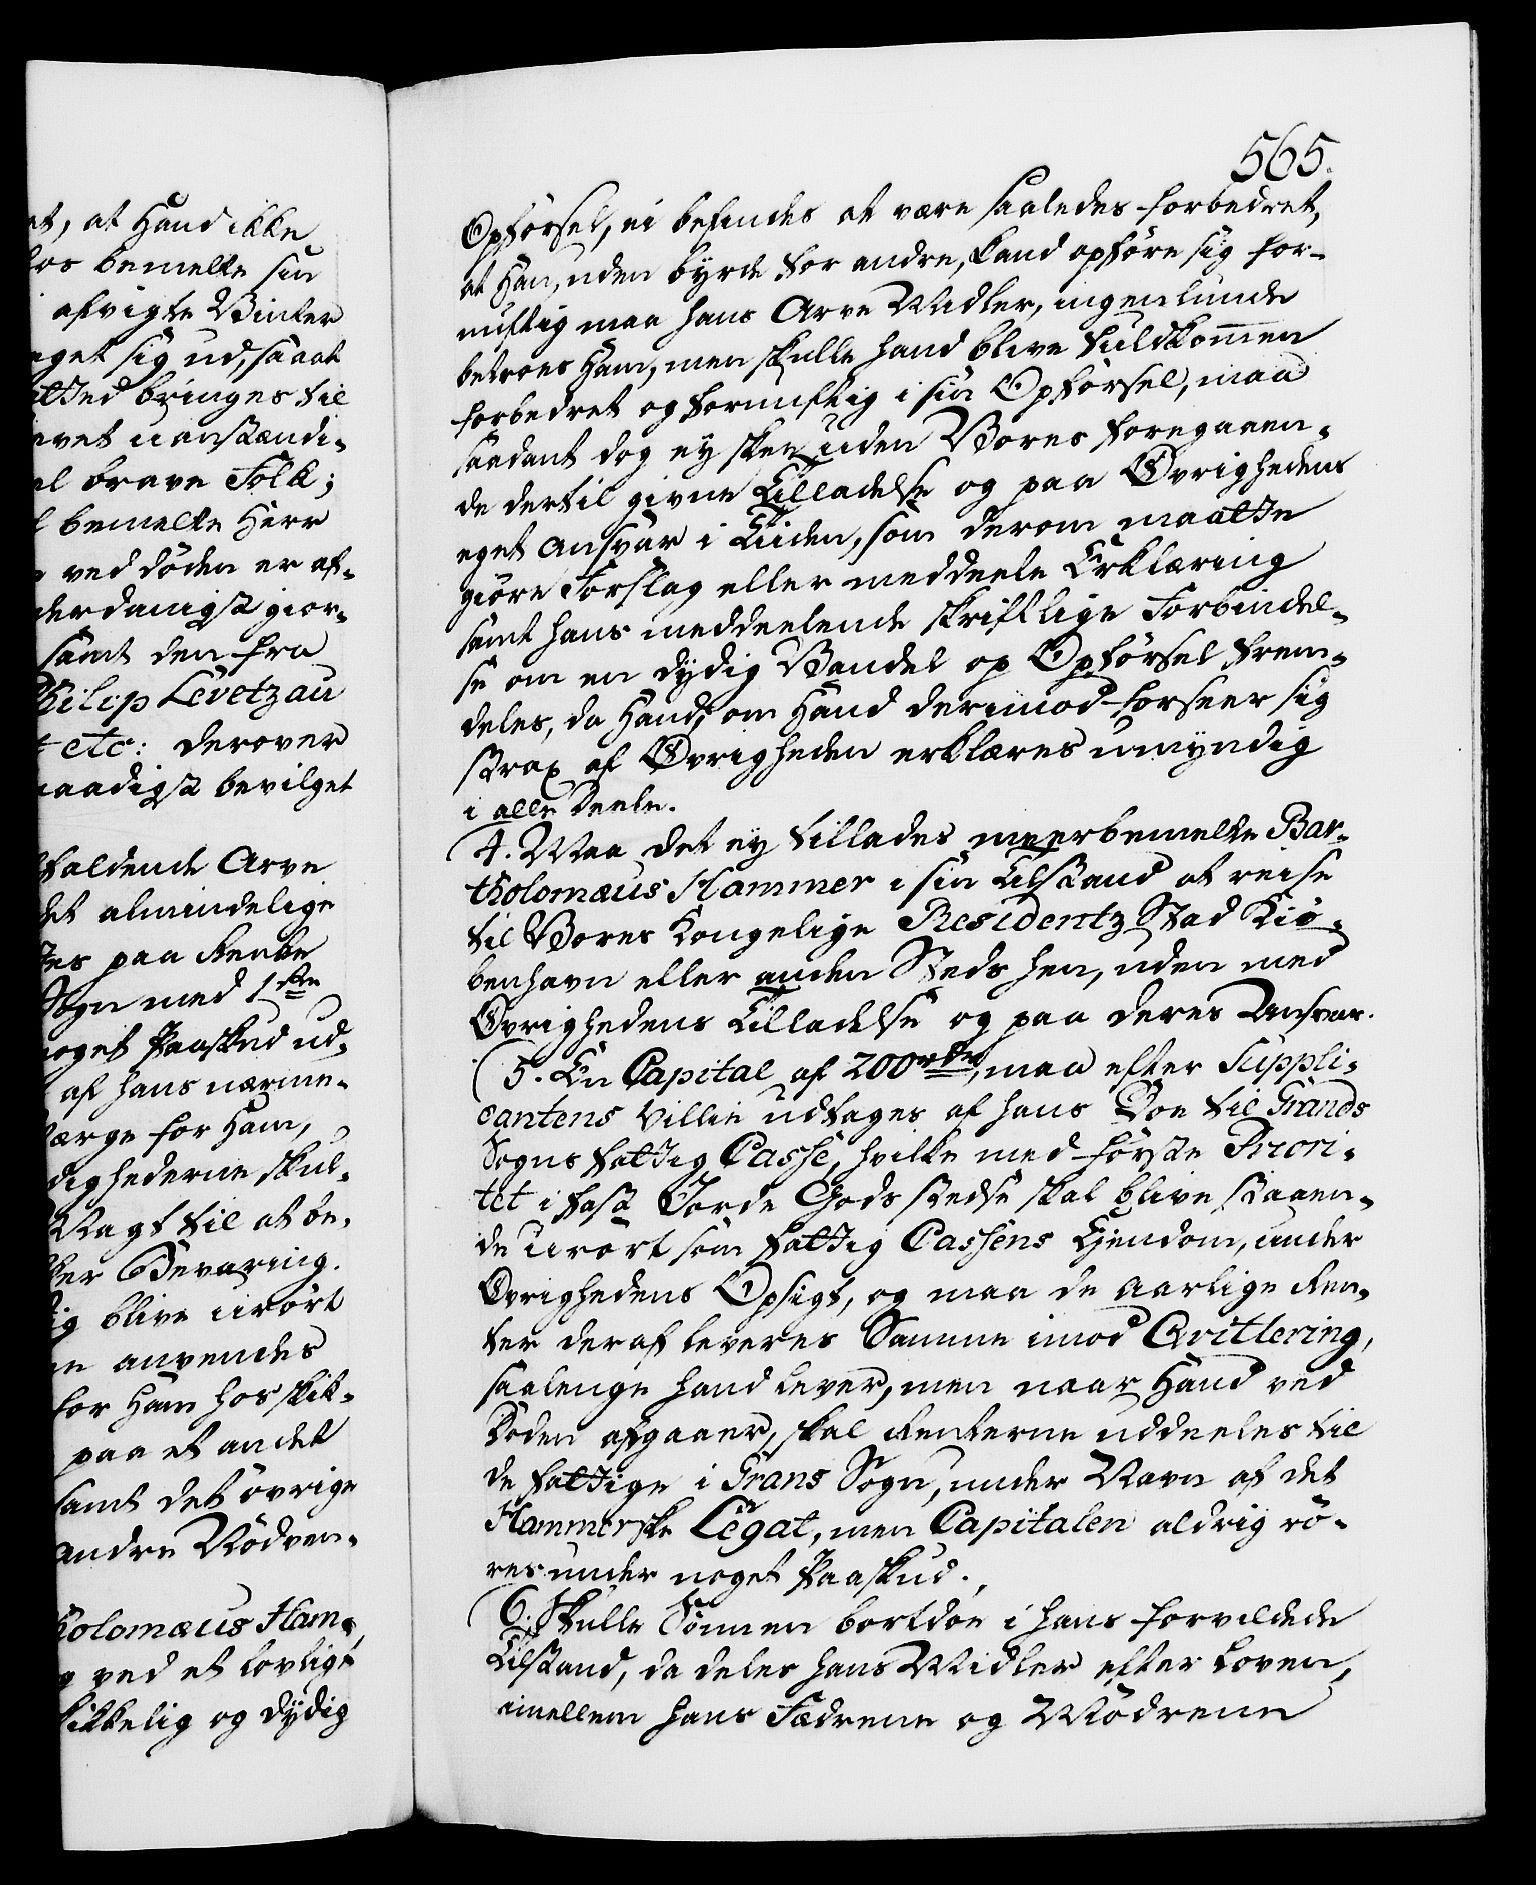 et, at Hand ikke
hos bemelte sin
afvigte Vinter
aget sig ud, saa at
atted bringes til
evet uanstændi-
el brave Folk;
l bemelte Herr
ved döden er af-
derdanigst gior-
samt den fra
Philip Levetzau
etc: derover
naadigst bevilget
faldende Arve
det almindelige
tes paa Rente
Sogn med 1ste
noget Paaskud ud-
af hans nærme-
værge for Ham,
dighederne skul-
Magt til at be-
ker Bevaring.
ig blive urört
en anvendes
for Ham hos skik-
paa et andet
samt det övrige
andre Nödven-
holomæus Ham-
g ved et lovligt
skikkelig og dydig
565.
Opförsel, ei befindes at være saaledes forbedret,
at Han, uden byrde for andre, kand opföre sig for-
nuftig maa hans Arve Midler, ingenlunde
betroes Ham, men skulle hand blive fuldkommen
forbedret og fornuftig i sin Opförsel, maa
saadant dog ey skee uden Vores foregaaen-
de dertil givne Tilladelse og paa Övrighedens
eget Ansvar i Tiiden, som derom maatte
giöre Forslag eller meddeele Erklæring
samt hans meddeelende skriftlige Forbindel-
se om en dydig Vandel og Opförsel frem-
deles, da Hand, om Hand derimod forseer sig
strax af Övrigheden erklæres umyndig
i alle deele.
4. Maa det ey tillades meerbemelte Bar-
tholomæus Hammer i sin Tilstand at reise
til Vores Kongelige Residentz Stad Kiö-
benhavn eller anden Steds hen, uden med
Övrighedens Tilladelse og paa deres Ansvar.
5. En Capital af 200 rdr, maa efter Suppli-
cantens villie udtages af hans Boe til Grands
Sogns fattig Casse, hvilke med förste Priori-
tet i fast Jorde Gods stedse skal blive staaen-
de urört som fattig Cassens Ejendom, under
Övrighedens Opsigt, og maa de aarlige Ren-
ter deraf leveres Samme imod Qvittering,
saalenge hand lever, men naar Hand ved
Döden afgaaer, skal Renterne uddeeles til
de fattige i Grans Sogn, under Navn af det
Hammerske Legat, men Capitalen aldrig rö-
res under noget Paaskud.
6. Skulle Sönnen bortdöe i hans forvildede
Tilstand, da deles hans Midler efter Loven,
imellem hans Fædrene og Mödrene